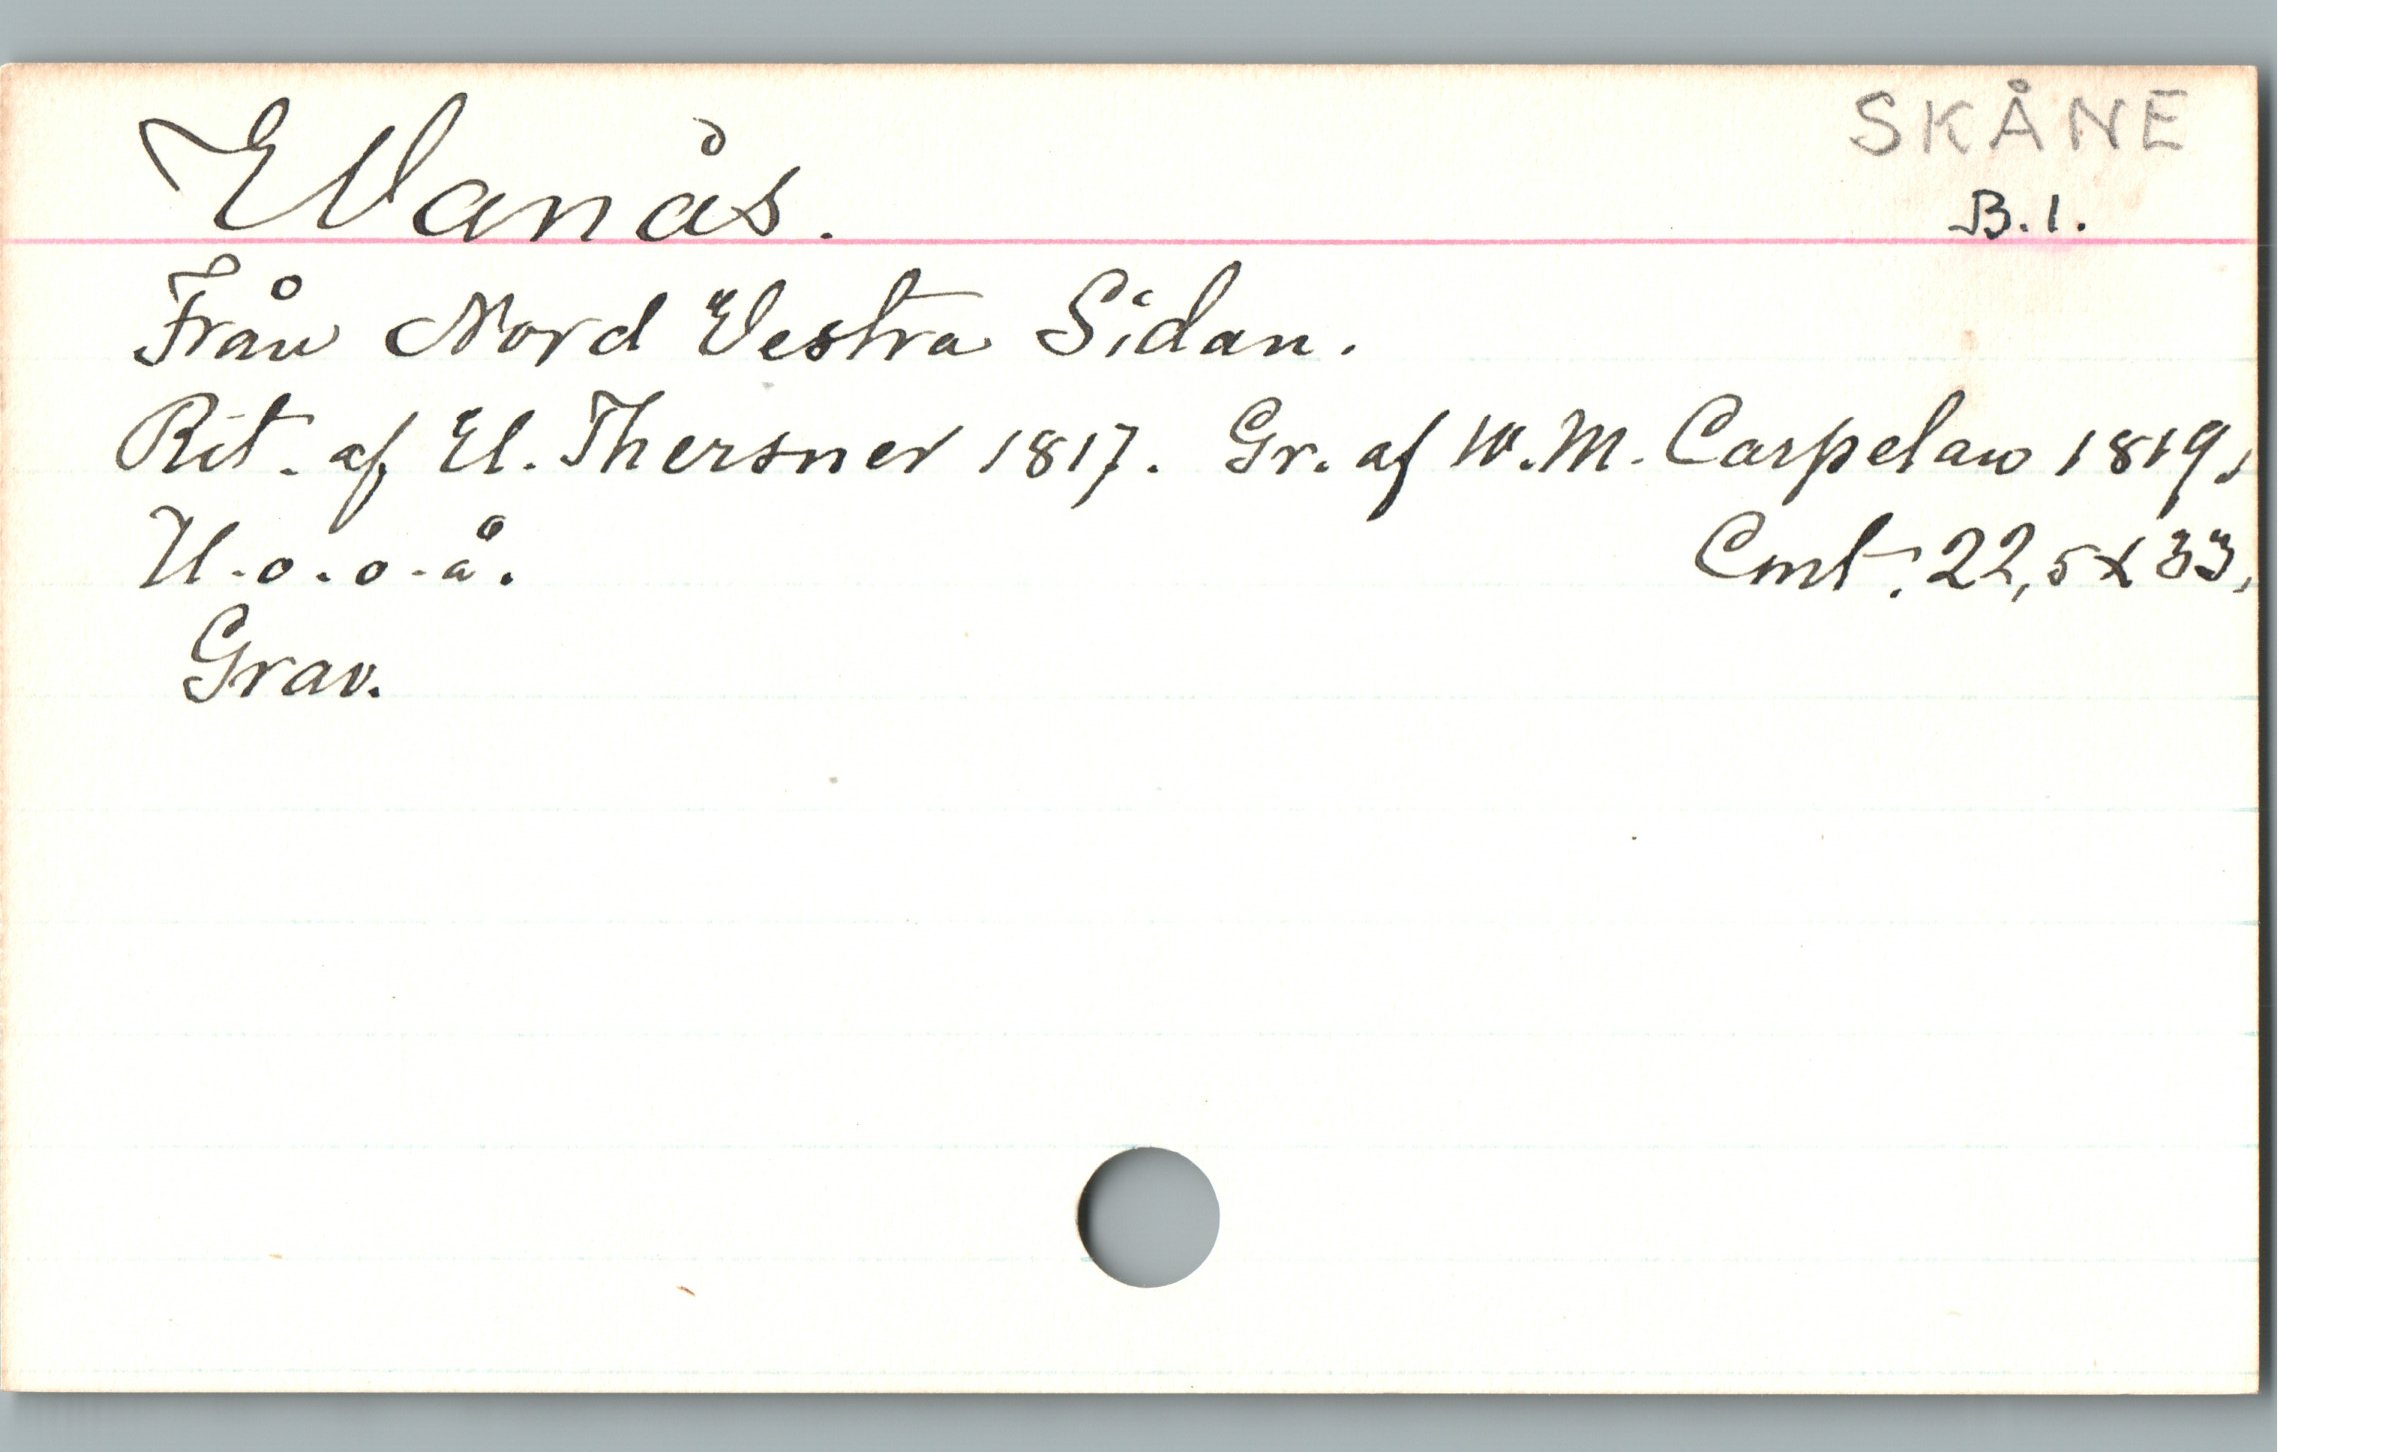 SKÅNE
Wanås.
B. 1.
Från Nord Vestra Sidan.
Rit. af U. Thersner 1817. Gr. af W. M. Carpelan 1819,
U. o. o. å.
Cmt. 22,5 x 33,
Grav.